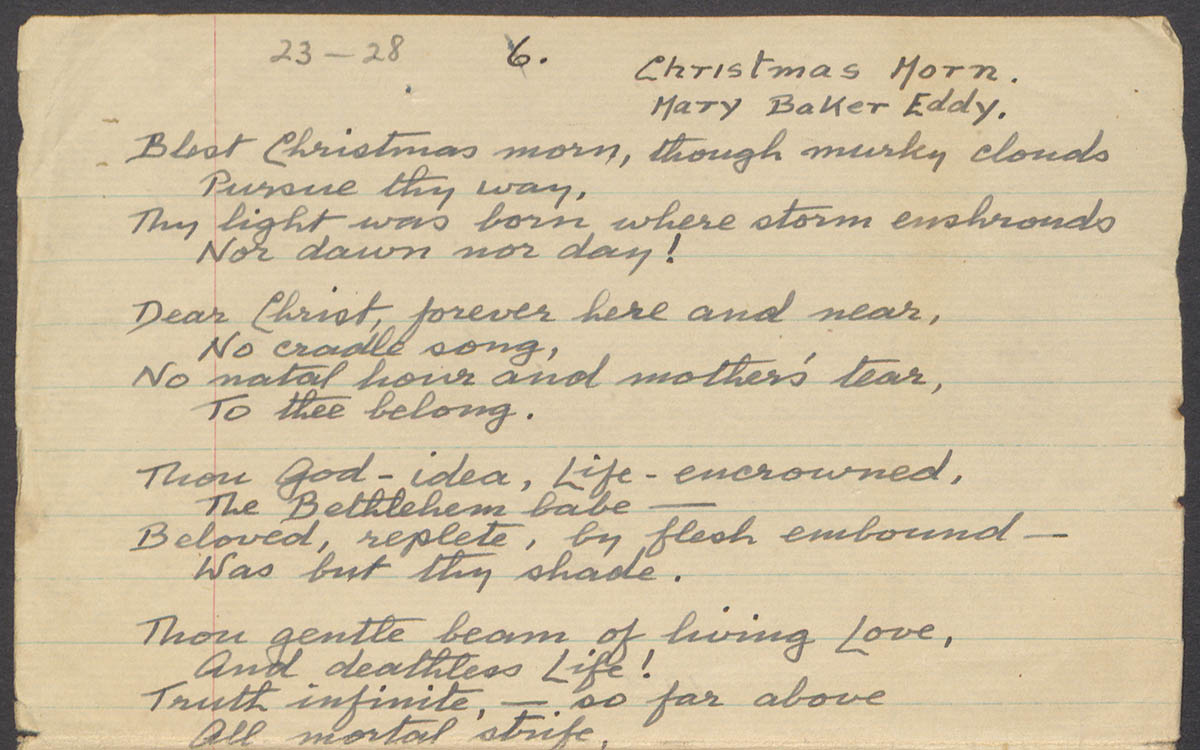 23 – 28 6. Christmas Morn.
Mary Baker Eddy.
Blest Christmas morn, though murky clouds
Pursue thy way,
Thy light was born where storm enshrouds
Nor dawn nor day!
Dear Christ, forever here and near,
No cradle song,
No natal hour and mother's tear,
To thee belong.
Thou God-idea, Life-encrowned,
The Bethlehem babe —
Beloved, replete, by flesh embound —
Was but thy shade.
Thou gentle beam of living Love,
And deathless Life!
Truth infinite, — so far above
All mortal strife,